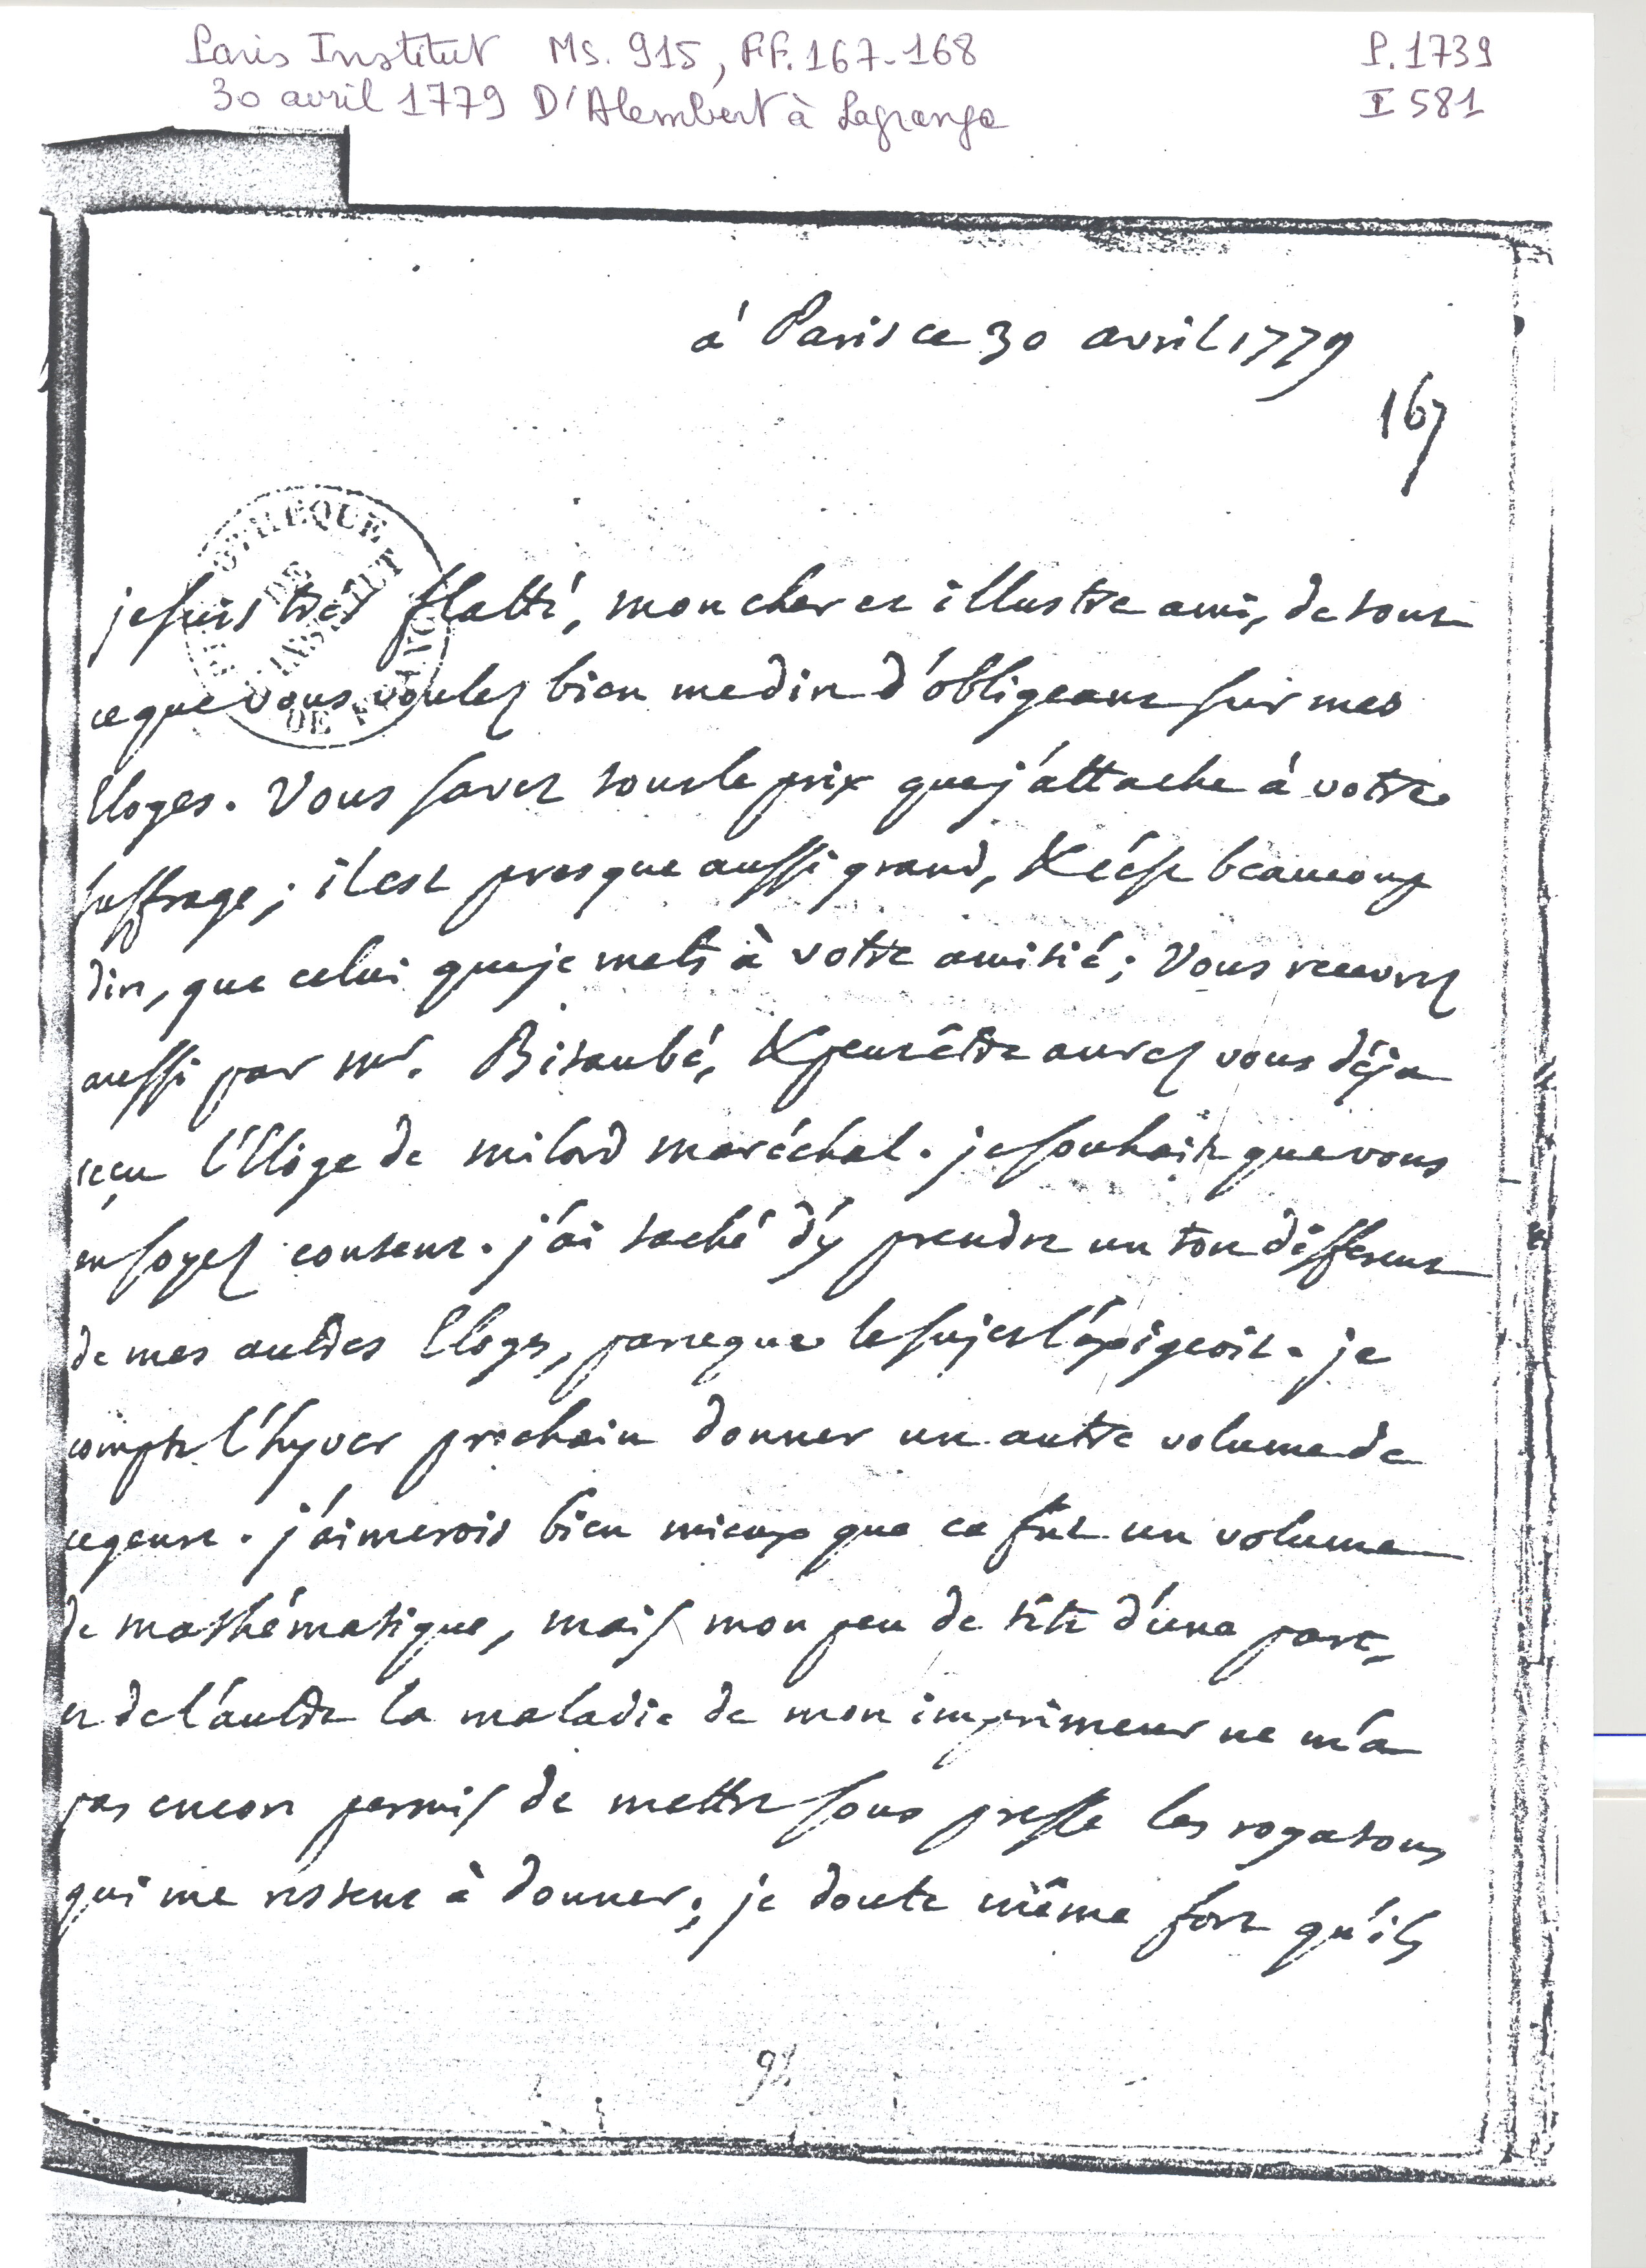 Paris Institut Ms. 915, FF. 167-168
P. 1739
30 avril 1779 D'Alembert à Lagrange
I 581
à Paris ce 30 avril 1779
167
BIBLIOTHEQUE DE L'INSTITUT DE FRANCE
je suis très flatté, mon cher et illustre ami, de tout
ce que vous voulez bien me dire d'obligeant sur mes
Eloges. Vous savez tout le prix que j'attache à votre
suffrage; il est presque aussi grand, & c'est beaucoup
dire, que celui que je mets à votre amitié; Vous recevrez
aussi par mr. Bitaubé, & peutêtre aurez vous déja
reçu l'Eloge de milord maréchal. je souhaite que vous
en soyez content. j'ai taché d'y prendre un ton different
de mes autres Eloges, parceque le sujet l'exigeoit. je
compte l'hyver prochain donner un autre volume de
ce genre. j'aimerois bien mieux que ce fut un volume
de mathématique, mais mon peu de tête d'une part,
et de l'autre la maladie de mon imprimeur ne m'a
pas encore permis de mettre sous presse les rogatons
qui me restent à donner; je doute même fort qu'ils